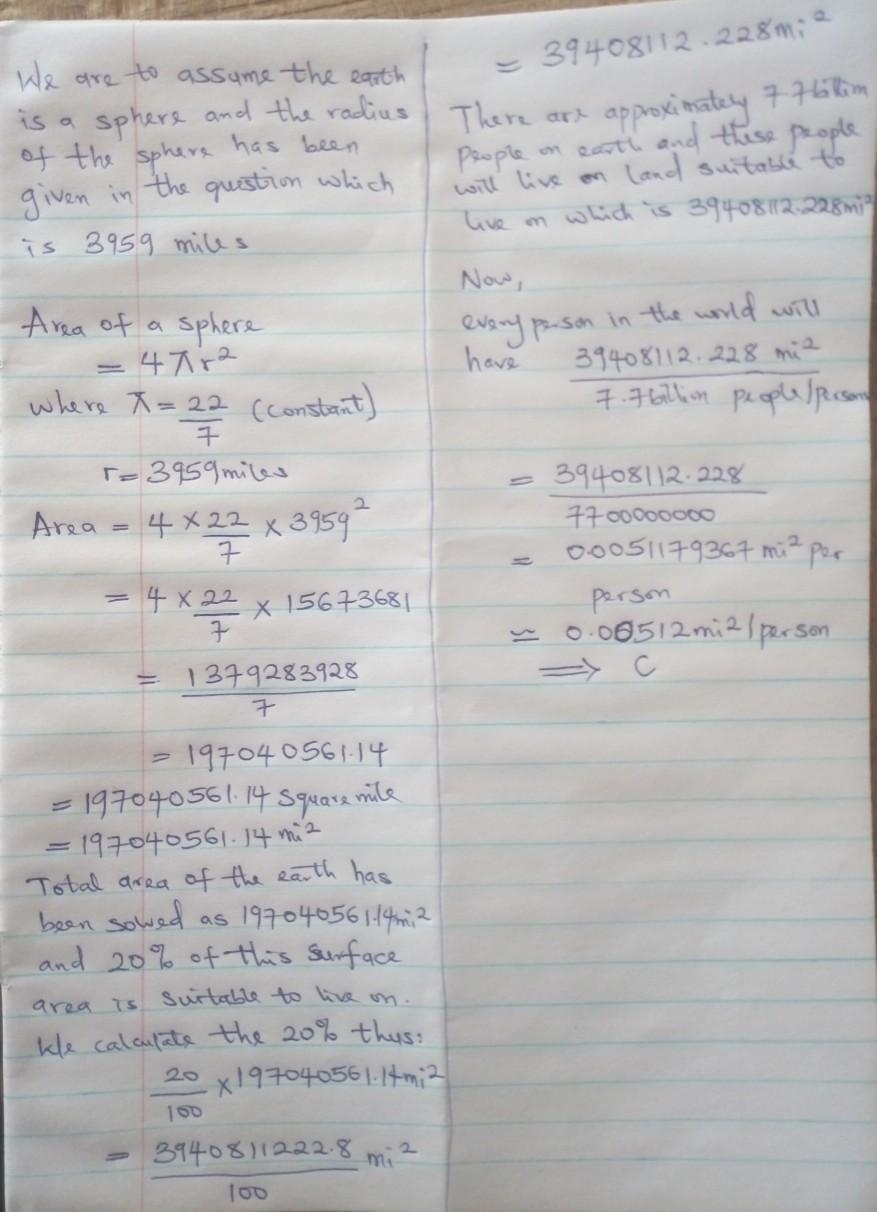 We are to assume the earth
is a sphere and the radius
of the sphere has been
given in the question which
is 3959 miles
Area of a sphere
= 4πr²
where π = 22/7 (constant)
r = 3959 miles
Area = 4 × 22/7 × 3959²
= 4 × 22/7 × 15673681
= 1379283928/7
= 197040561.14
= 197040561.14 square mile
= 197040561.14 mi²
Total area of the earth has
been solved as 197040561.14mi²
and 20% of this surface
area is suitable to live on.
We calculate the 20% thus:
20/100 × 197040561.14mi²
= 3940811222.8/100 mi²
= 39408112.228mi²
There are approximately 7.7billion
people on earth and these people
will live on land suitable to
live on which is 39408112.228mi²
Now,
every person in the world will
have 39408112.228 mi²/7.7billion people/person
= 39408112.228/7700000000
= 0.0051179367 mi² per
person
≃ 0.00512mi²/person
⟹ C